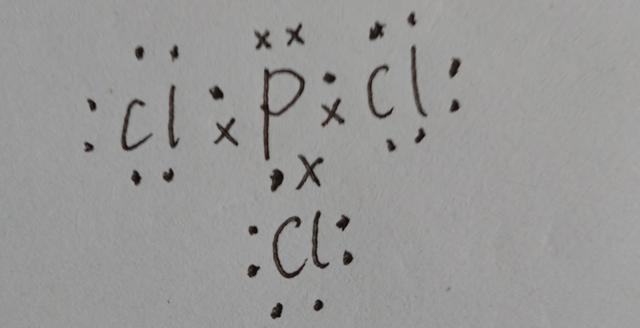 Cl P Cl
Cl